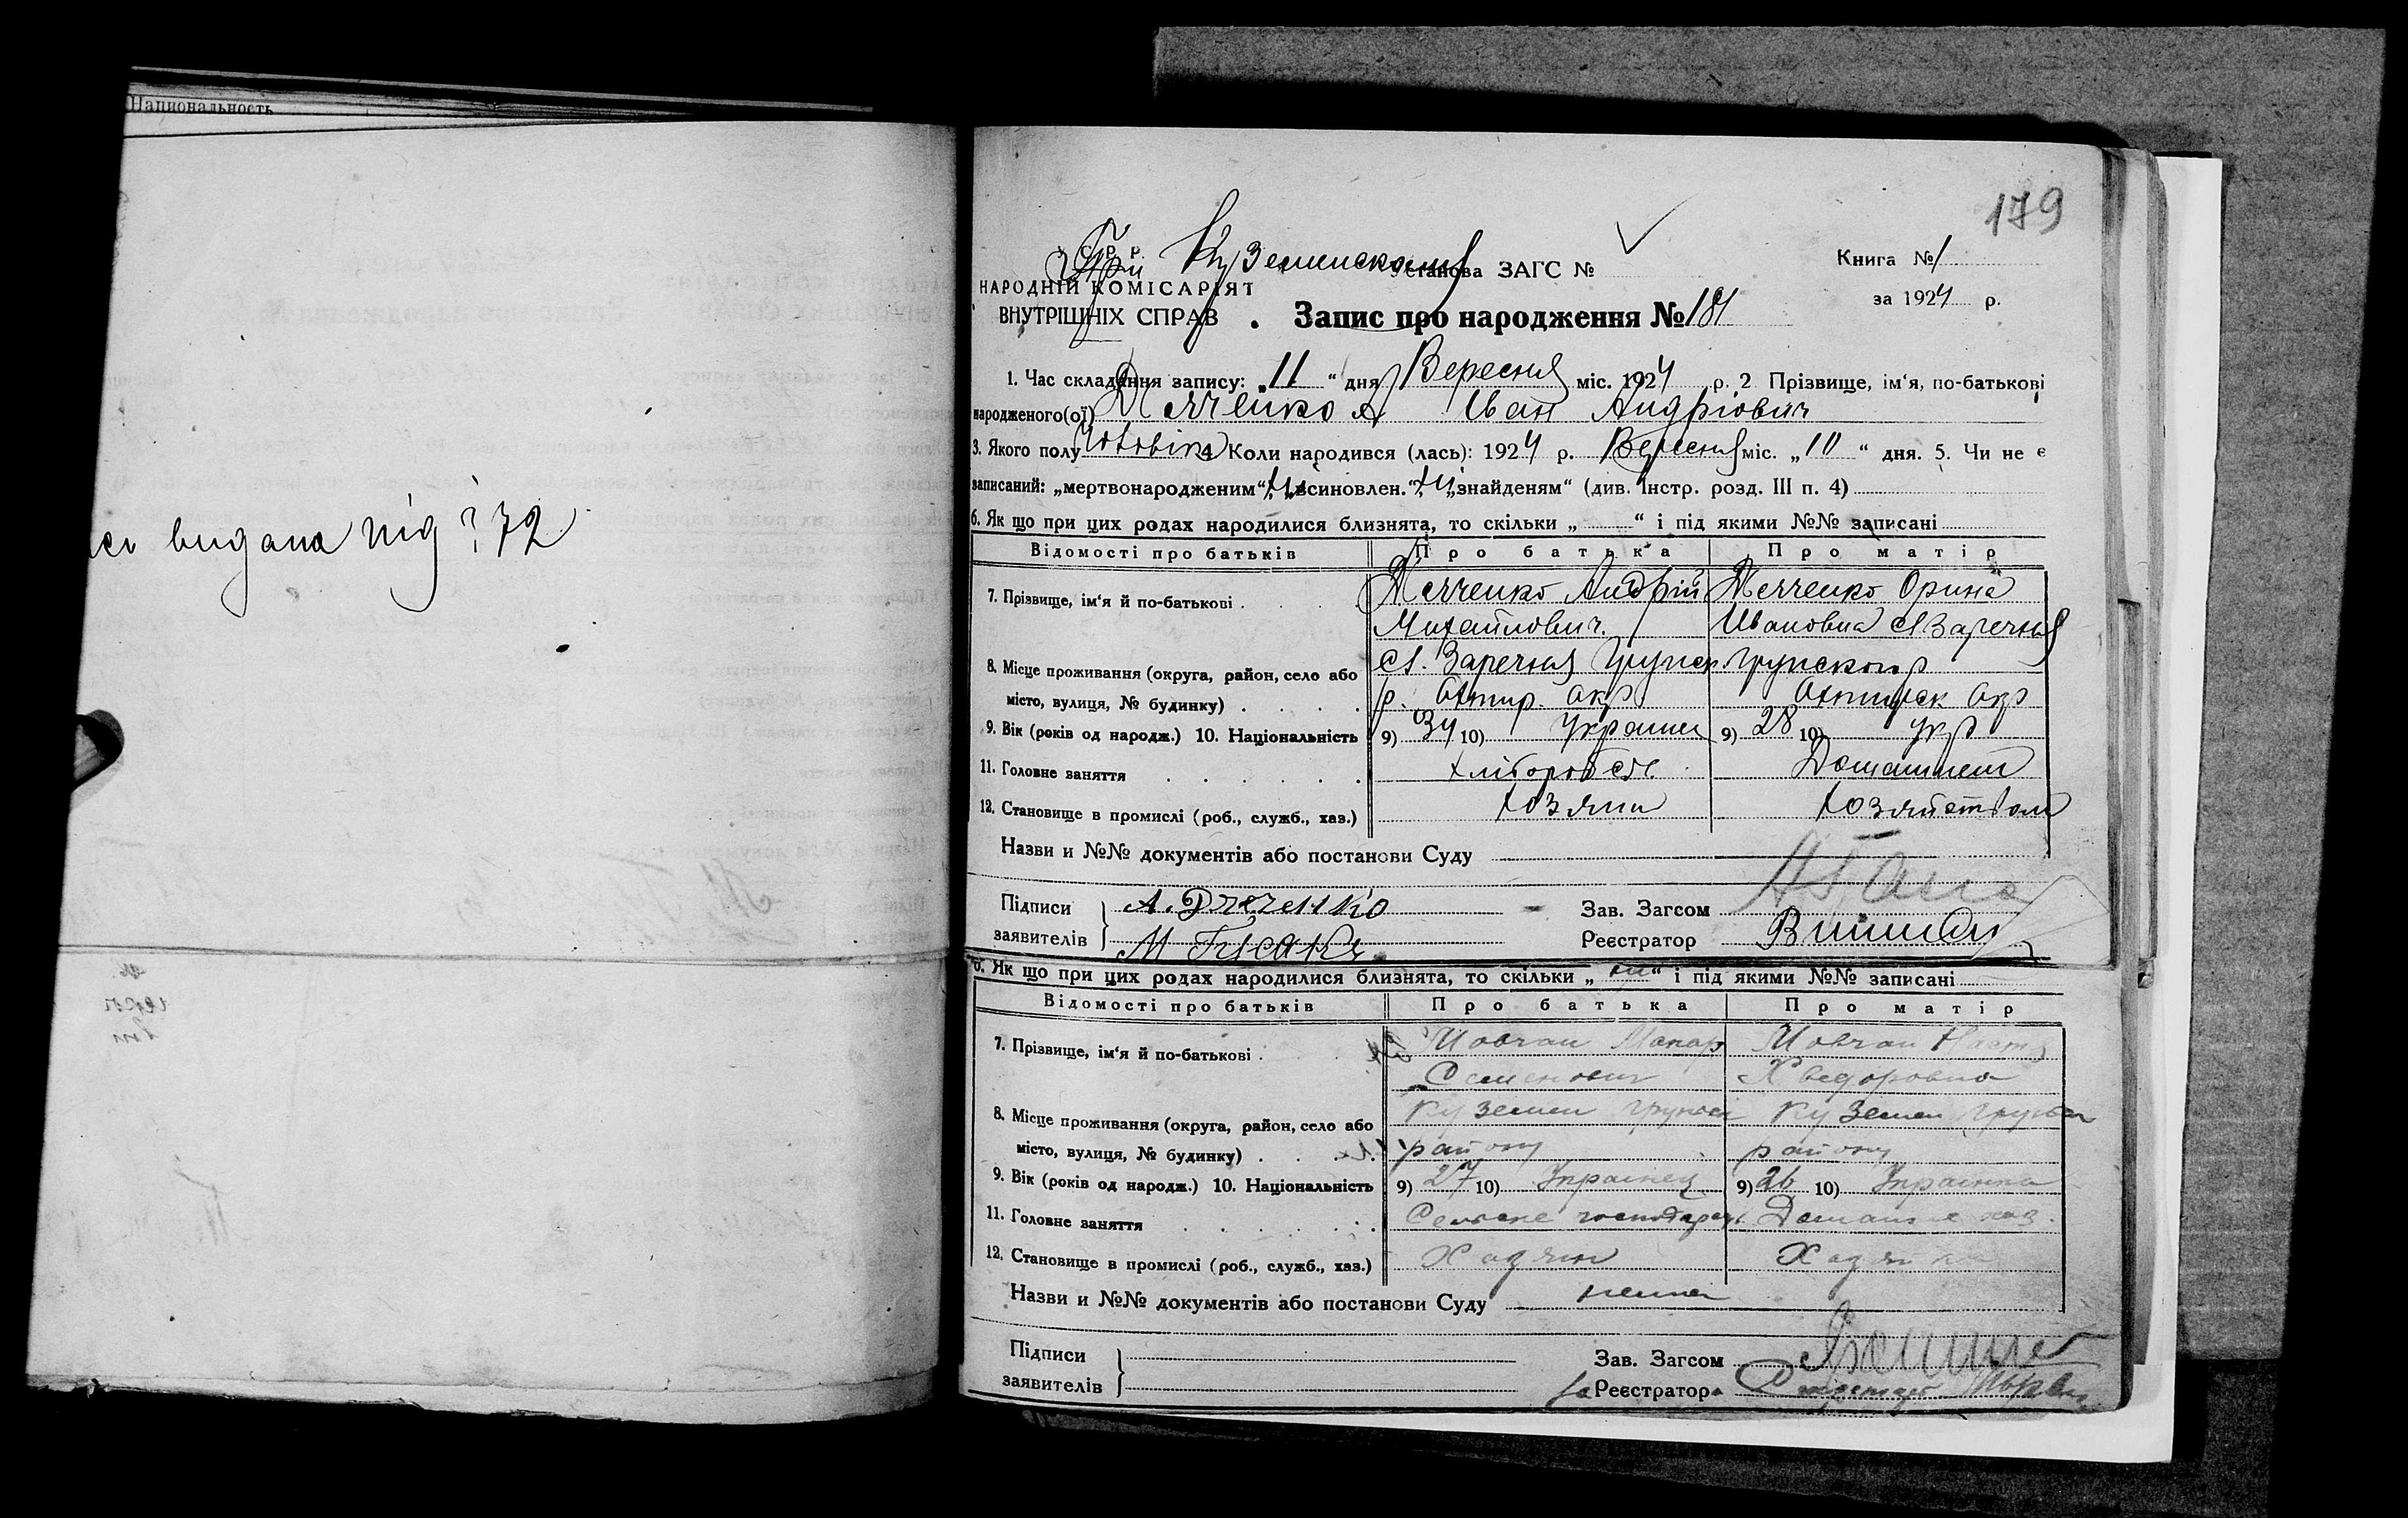 Национальность
видана під 72
179
У. С. Р. Р.
При Куземенскому
Установа ЗАГС №
Книга № 1
НАРОДНІЙ КОМІСАРІЯТ
за 1924 р.
ВНУТРІШНІХ СПРАВ
Запис про народження № 181
1. Час складання запису: „11“ дня Вересня міс. 1924 р. 2 Прізвище, ім‘я, по-батькові
народженого(ої) Дяченко Іван Андріович
3. Якого полу Чоловік 4 Коли народився (лась): 1924 р. Вересня міс. „10“ дня. 5. Чи не є
записаний: „мертвонародженим“, ні „всиновлен.“, ні „знайденям“ (див. Інстр. розд. III п. 4)
6. Як що при цих родах народилися близнята, то скільки „ “ і під якими №№ записані
Відомості про батьків Про батька Про матір
7. Прізвище, ім‘я й по-батькові . Дяченко Андрій Дяченко Орина
Михайлович. Ивановна Сл Заречная
8. Місце проживання (округа, район, село або Сл. Заречная Грунск. Грунского р
місто, вулиця, № будинку) . р. Охтир. окр Охтирск окр
9. Вік (років од народж.) 10. Національність 9) 34 10) Украинец 9) 28 10) укр
11. Головне заняття Хліборобств. Домашнем
12. Становище в промислі (роб., служб., хаз.) хозяин хозяйством
Назви и №№ документів або постанови Суду
Підписи А. Дяченко Зав. Загсом
заявителів М Гусак Реєстратор
6. Як що при цих родах народилися близнята, то скільки „ ні “ і під якими №№ записані
Відомості про батьків Про батька Про матір
7. Прізвище, ім‘я й по-батькові . Мовчан Макар Мовчан Настя
Семенович Хведоровна
8. Місце проживання (округа, район, село або Куземен Грунск Куземен Грунск
місто, вулиця, № будинку) . району району
9. Вік (років од народж.) 10. Національність 9) 27 10) Украінец 9) 26 10) Украінка
11. Головне заняття Сельске господарс. Домашне хаз.
12. Становище в промислі (роб., служб., хаз.) Хазяін Хазяйка
Назви и №№ документів або постанови Суду нема
Підписи Зав. Загсом
заявителів за Реєстратора Секретарь